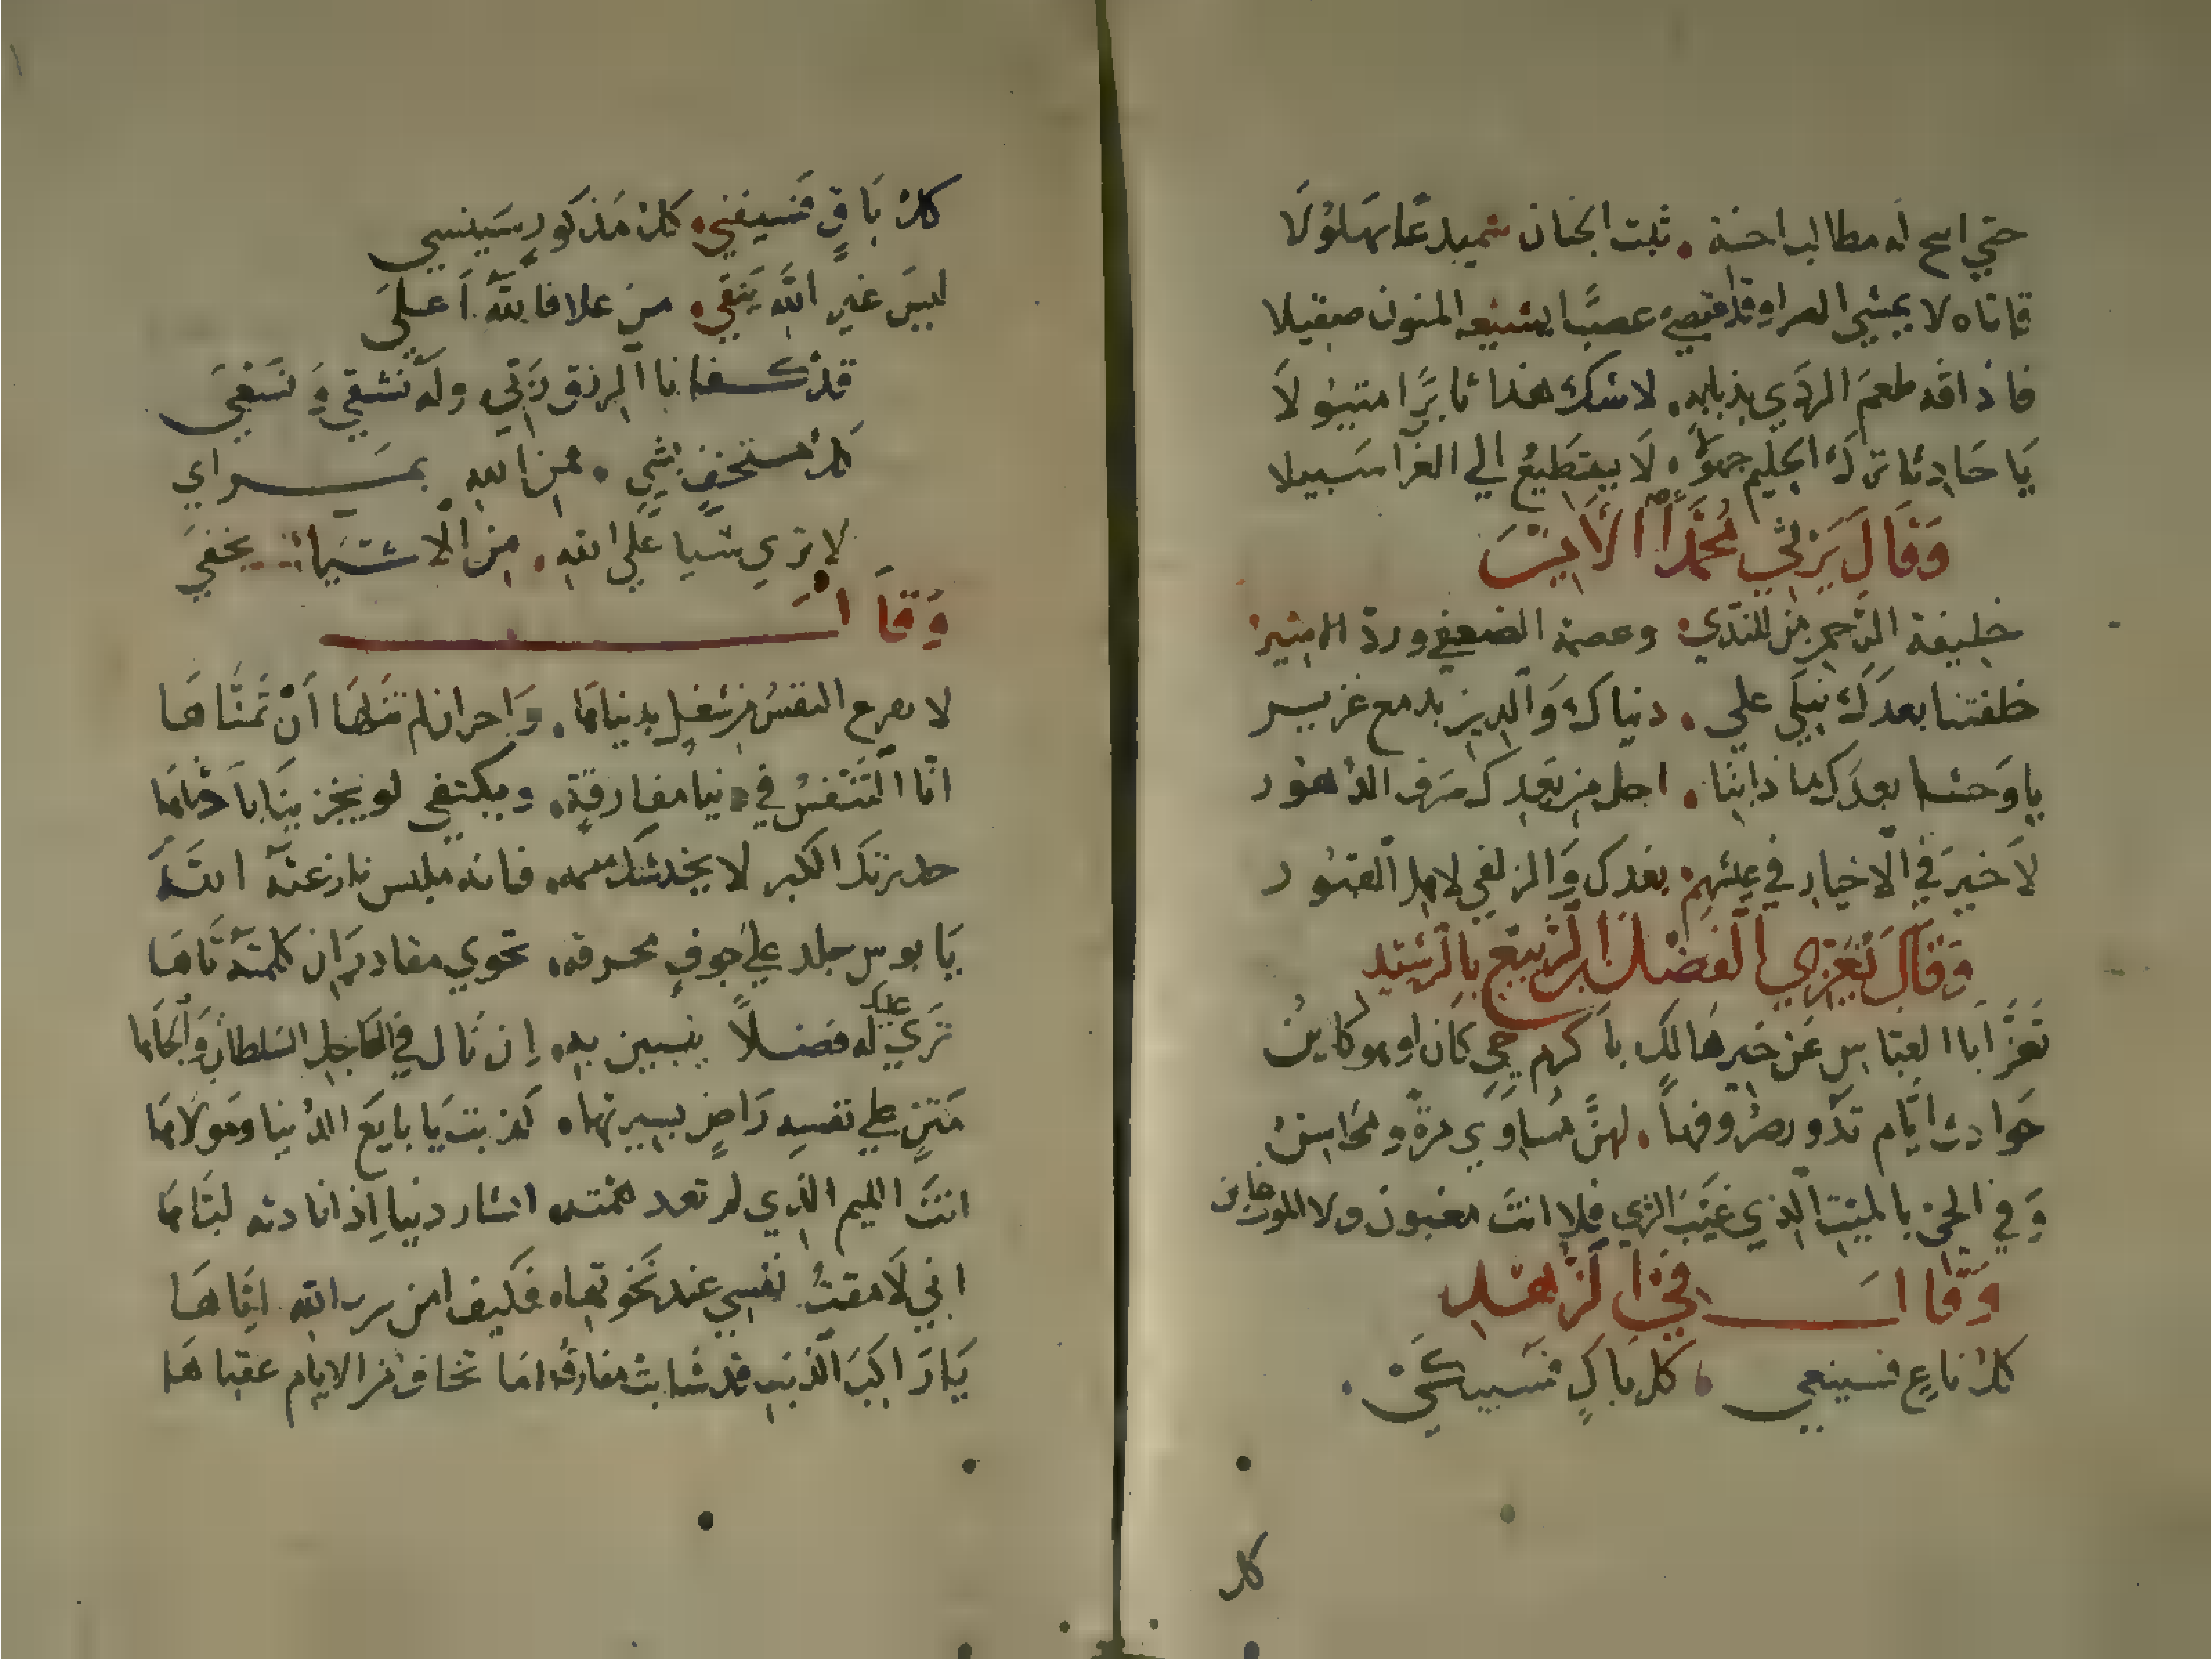 حتي اتيح له مطالب احنة . ثبت الجنان شميدعا بهلولا
فاتاه لا يمشي المرا وقد اقتضي عضبًا يشيعه المنون صقيلا
فاذاقه طعمَ الردَي بذبابه . لا شك هذا ثايرًا متبولَا
يَا حَادِثا ترك الحليم جهوُله . لَا يستَطيعُ الي الغرا سَبيلا
وَقَالَ يَرثي مُحَمَّدًا الَامين
خليفة الرحمن للندي وعصمة الضعفي وردّ الاسير
خلفتنا بعدَكَ نبكي علي . دنياك وَالدين بدمع غزير
يا وَحشتا بعدَك ماذا بنا . احل من بعدك صَرف الدُهور
لَا خيرَ في الاخيار في عيشهم بعدك وَالزلفي لاهل القبور
وَقَالَ تُعَزي الفَضلَ بن الربيع بالرشيد
تعَزَّ أبا العبَّاس عَن خير هَالكٍ باكرم حيٍ كَان او هو كاينُ
حَوادث أيَّام تدُور صرُوفها . لهنَّ مَسَاوَي مرةً ومحَاسنُ
وَفي الحي بالميت الذي غيَّبَ الثري فلا انتَ مغبون ولا الموت خاين
وَقَال في الزهد
كلُ ناعٍ فسينعي . كل باكٍ فسيبكي .
كل
كلُ بَاقٍ فسيفني . كلُ مَذكورٍ سَينسي
ليسَ غير الله يَبقي . من علا فالله أعلي
قد كفانا الرزق ربَي وله نشقي وَ نسَعي
كلُ مستخفٍ بشي . فمن الله بمراي
لا تري شيا علي الله . من الاشياء يخفي
وَقَال
لا تفرع النفسُ من شغلٍ بدنياها . وَاحر ان لم تنلها أن تمنَّاها
انَّا لَتنْفسُ في دنيا مفارقةٍ . ويكتفي لو نجز بنا باَدناها
حذرتك الكبر لا يخدشك ميسمه فانه ملبس نازعته اللهَ
يَا بوس جلد عليَ جوفٍ محرقه تحوي مقادير ان كلمته تَاها
تَري عليك له فضلًا يبين به إن نَال في العَاجل السلطان وَالجاها
مَثنٍ علي نفسه رَاضٍ بسيرتها . كذبت يَا بايع الدُنيا ومَولاها
انتَ الليم الذي لم تعد همته ايثار دنيا اذا نادته لبَّاها
اني لَامقتُ نفسي عند نَخوتها . فكيف امن الله ايَّاهَا
يَا رَاكبَ الذَنب قد شَابت مفارقه اما تخاف من الايام عقباهَا